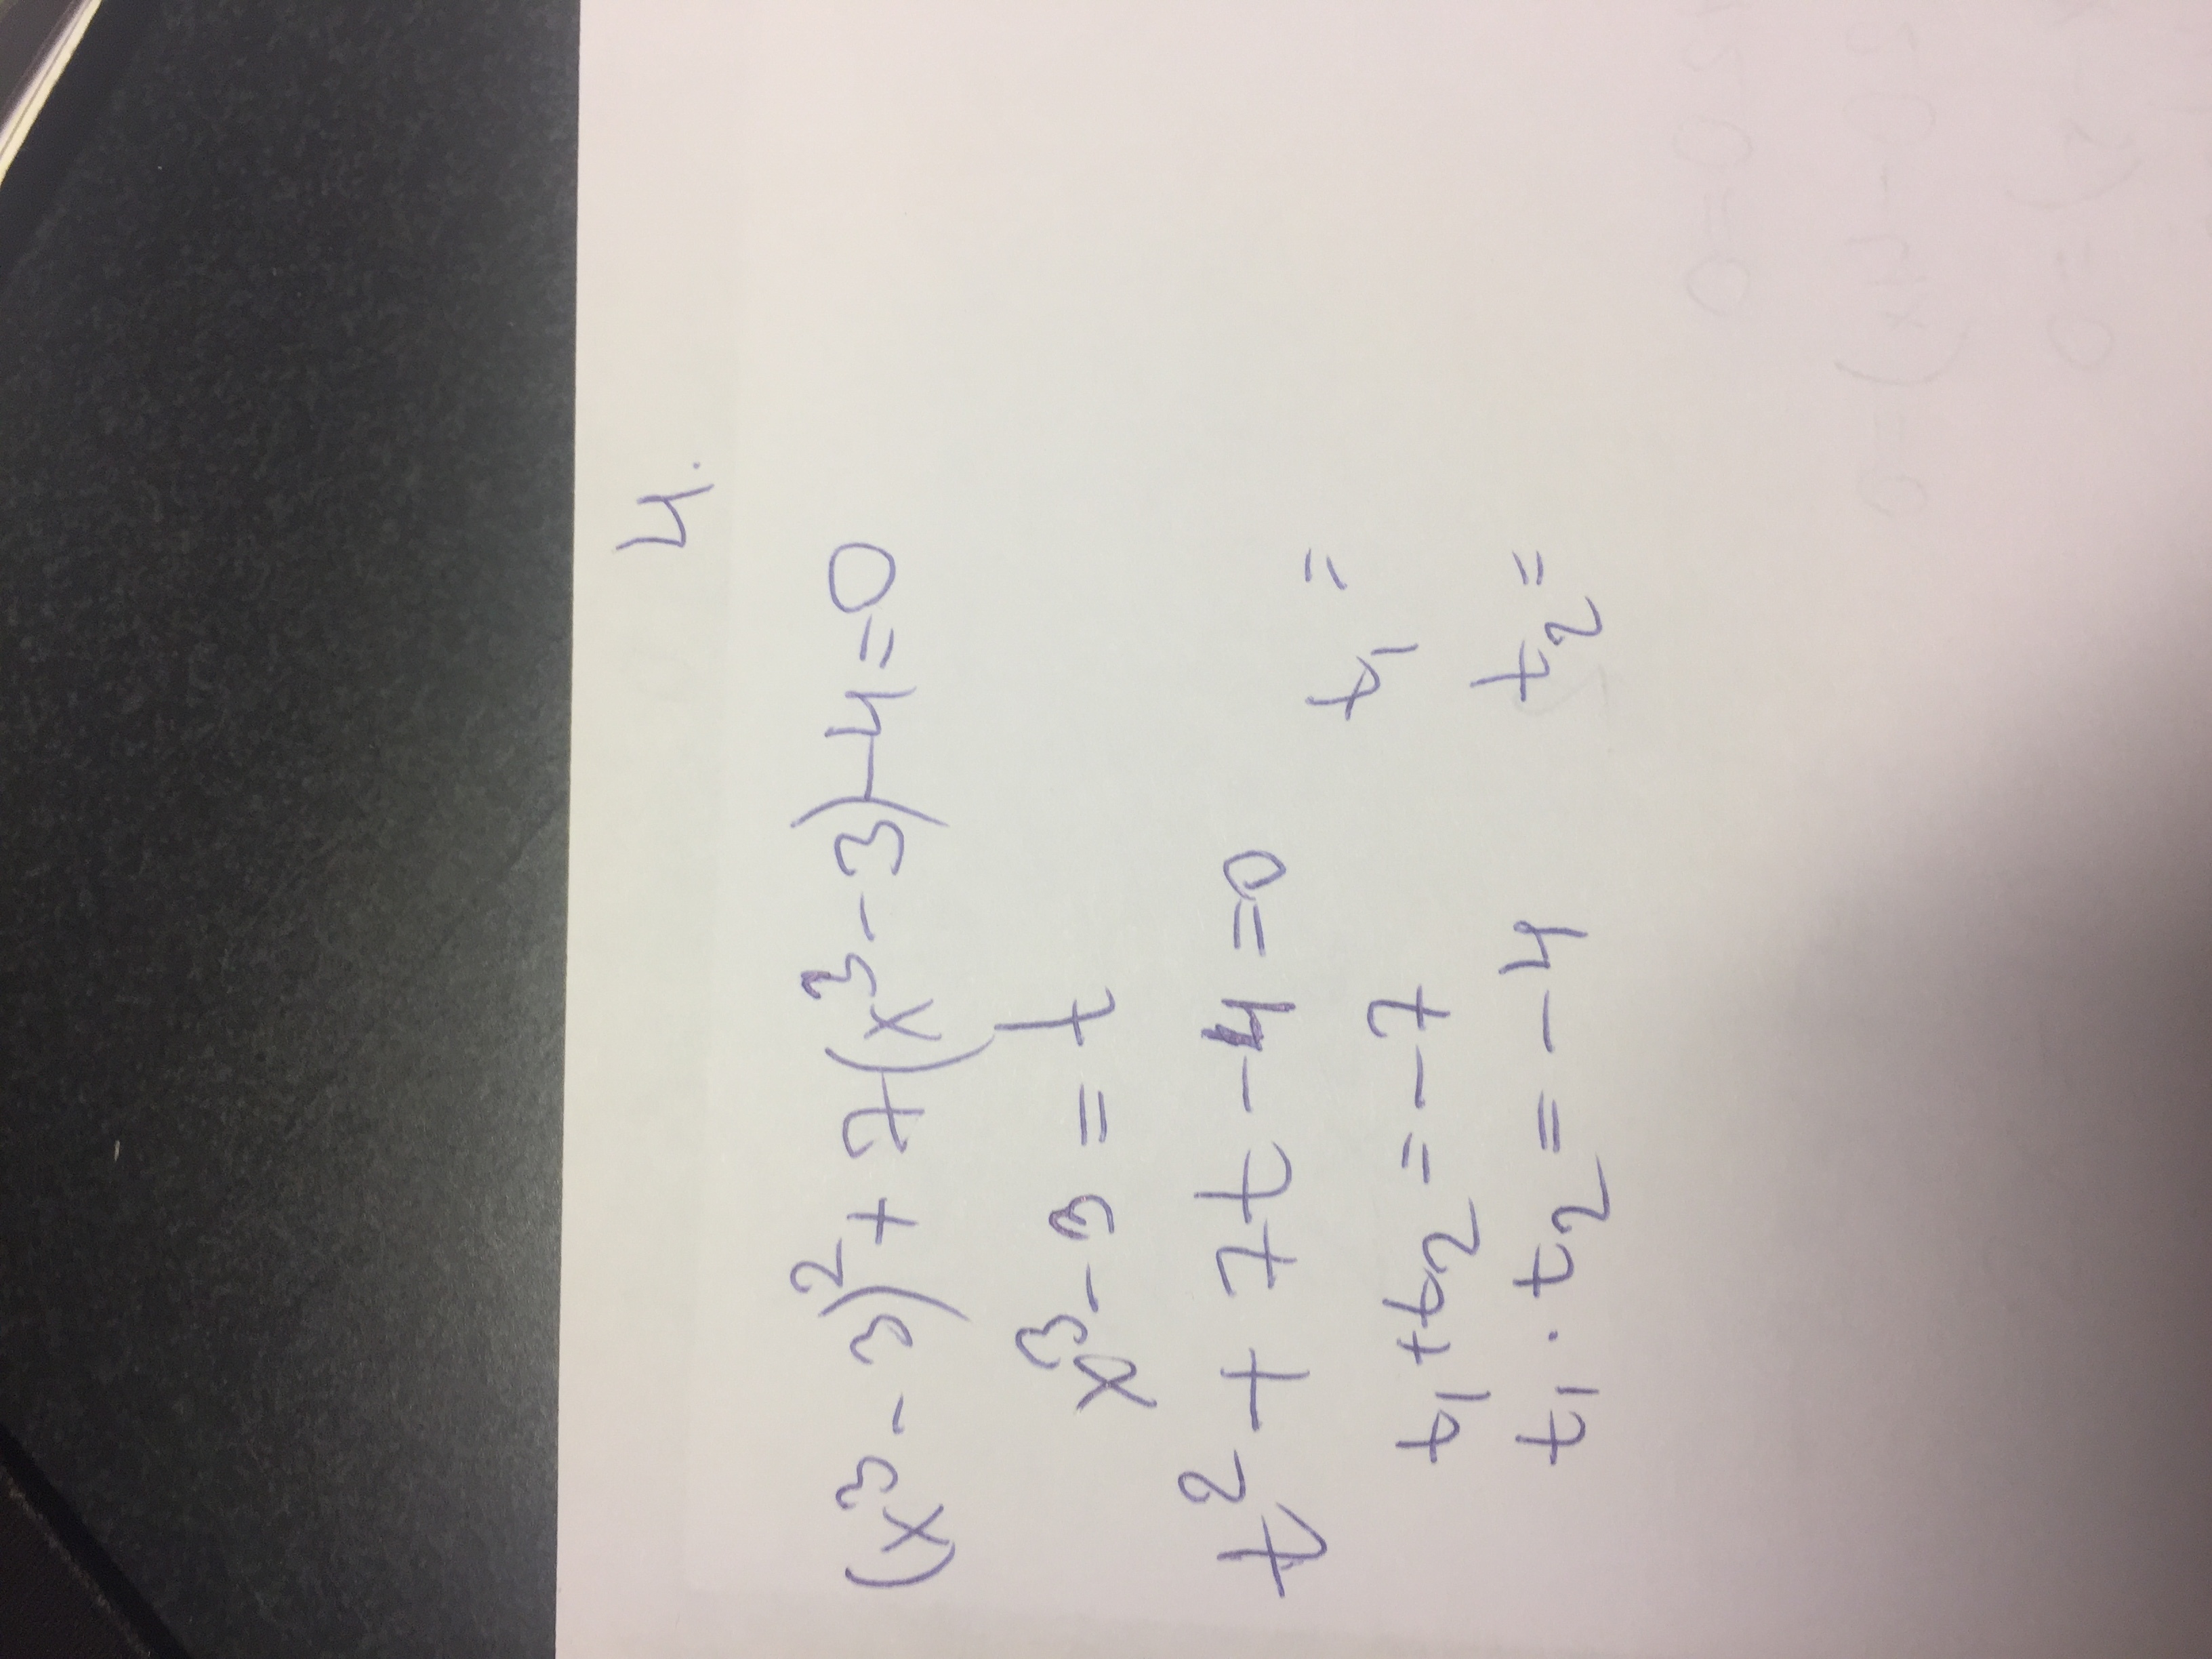 4.
(x³-3)²+7(x³-3)-4=0
x³-3=t
t²+7t-4=0
t₁+t₂=-7 t₁=
t₁·t₂=-4 t₂=